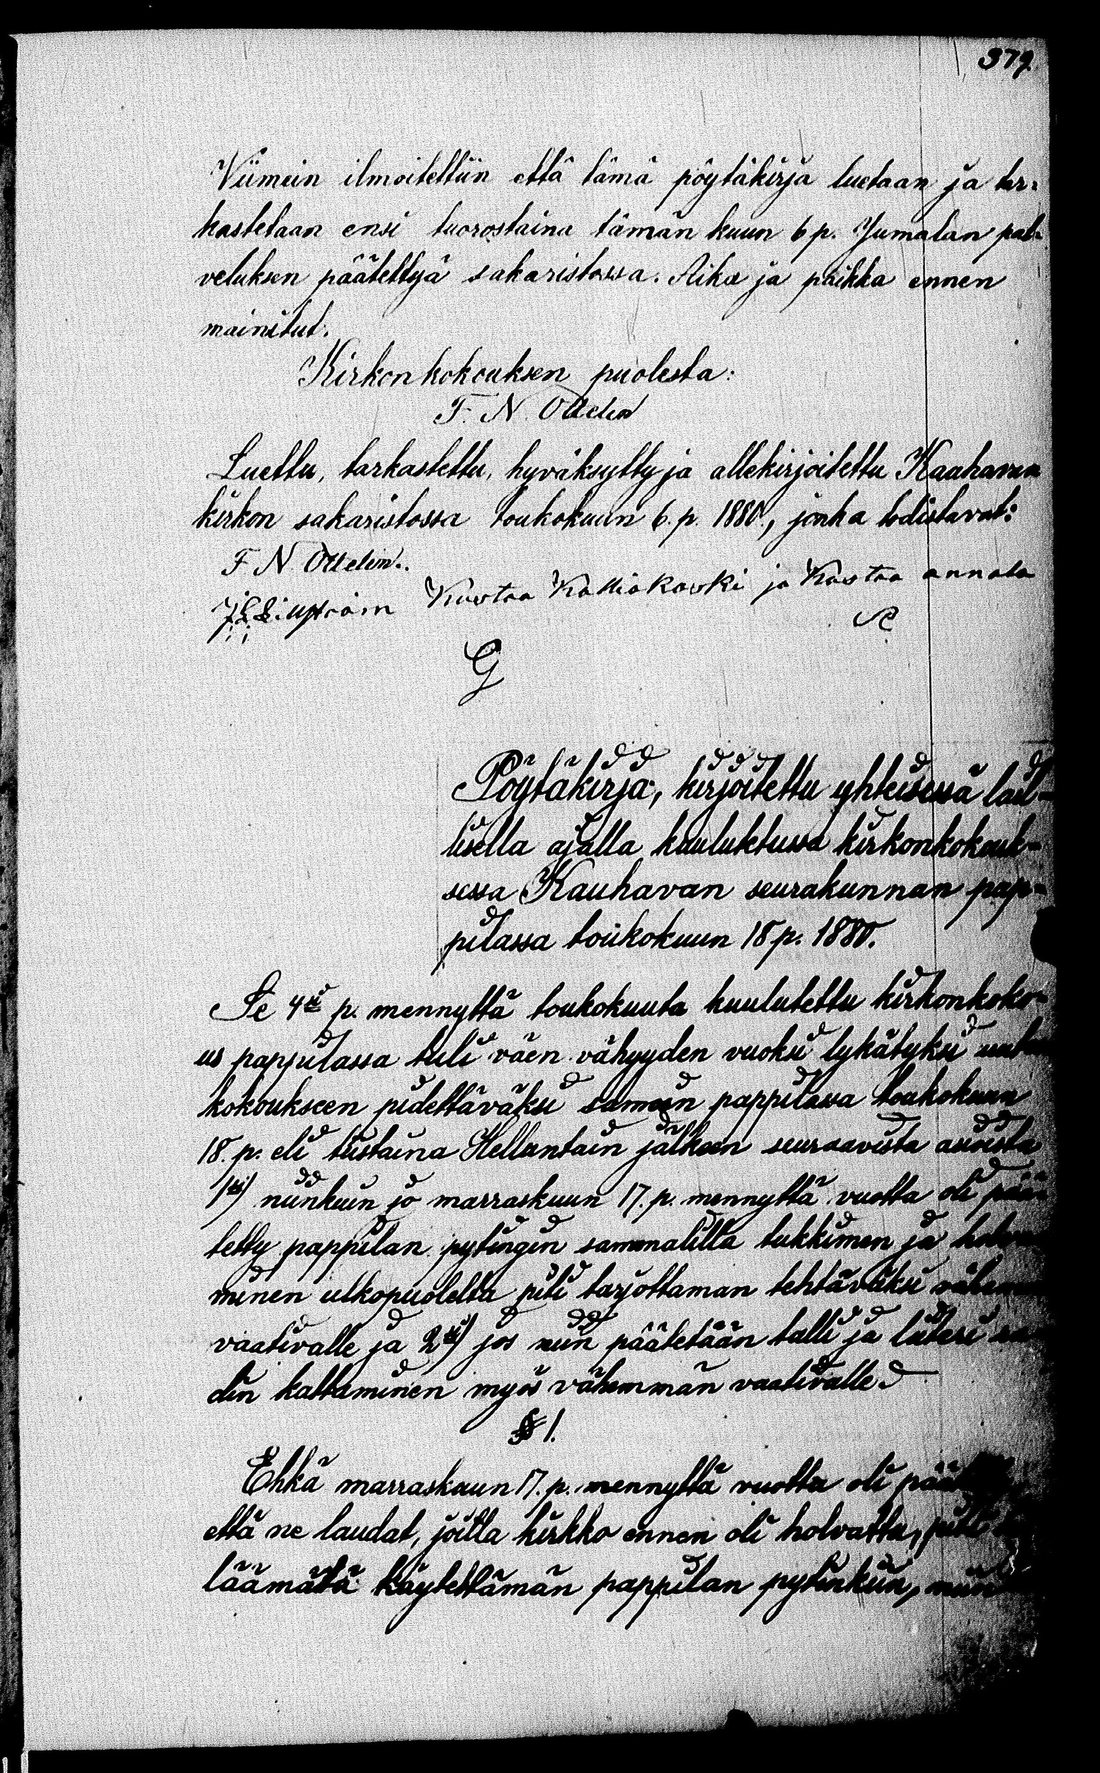 379.
Viimein ilmoitettiin että tämä pöytäkirja luetaan ja tar-
kastetaan ensi tuorostaina tämän kuun 6 p. Jumalan pal-
veluksen päätettyä sakaristossa. Aika ja paikka ennen
mainitut.
Kirkonkokouksen puolesta:
F. N. Ottelin
Luettu, tarkastettu, hyväksytty ja allekirjoitettu Kauhavan
kirkon sakaristossa toukokuun 6. p. 1880, jonka todistavat:
F N Ottelin.
Kustaa Kalliokoski ja Kustaa annala
G
Pöytäkirja, kirjoitettu yhteisessä lail-
lisella ajalla kuulutetussa kirkonkokouk-
sessa Kauhavan seurakunnan pap-
pilassa toukokuun 18 p. 1880.
Se 4tä p. mennyttä toukokuuta kuulutettu kirkonkoko-
us pappilassa tuli väen vähyyden vuoksi lykätyksi
kokoukseen pidettäväksi samoin pappilassa toukokuun
18. p. eli tiistaina Helluntain jälkeen seuraavista asioista
1ksi) niinkuin jo marraskuun 17. p. mennyttä vuotta oli pää-
tetty pappilan pytingin sammalilla tukkimen ja
minen ulkopuolelta piti tarjottaman tehtäväksi vähemmin
vaativalle ja 2ksi) jos niin päätetään talli ja liiteri
din kattaminen myös vähemmän vaativalle.
§ 1.
Ehkä marraskuun 17. p. mennyttä vuotta oli
että ne laudat, joilla kirkko ennen oli holvattu, piti
läämätä käytettämän pappilan pytinkiin, niin